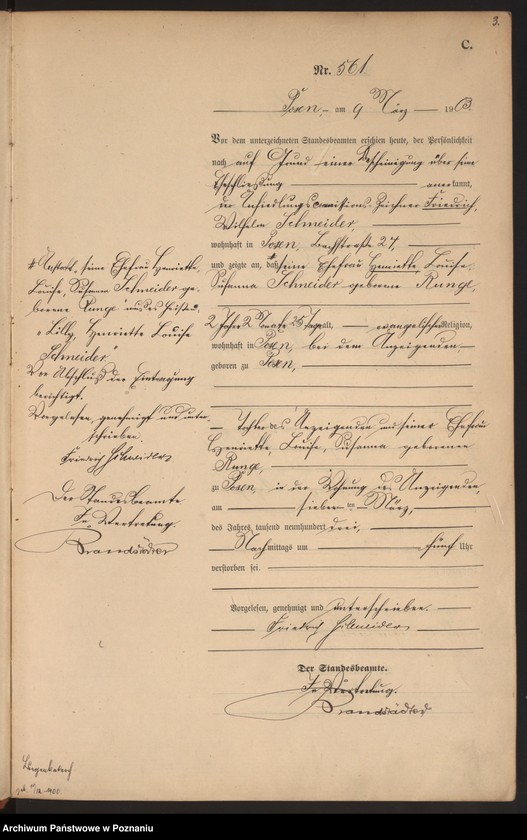 3.
C.
Nr. 561.
Posen, am 9 März 1903.
Vor dem unterzeichneten Standesbeamten erschien heute, der Persönlichkeit
nach auf Grund einer Bescheinigung über seine
Eheschließung anerkannt,
der Ansiedlungscommissions-Zeichner Friedrich,
Wilhelm Schneider,
wohnhaft in Posen, Bachstraße 24,
und zeigte an, daß # seine Ehefrau Henriette Louise,
Susanna Schneider geborene Runge,
2 Jahre 2 Monate 25 Tage alt, evangelischer Religion,
wohnhaft in Posen, bei dem Anzeigenden
geboren zu Posen,
Tochter des Anzeigenden und seiner Ehefrau
Henriette, Louise, Susanna geborenen
Runge,
zu Posen, in der Wohnung des Anzeigenden,
am sieben ten März,
des Jahres tausend neunhundert drei,
Nachmittags um fünf Uhr
verstorben sei.
Vorgelesen, genehmigt und unterschrieben.
Friedrich Schneider
Der Standesbeamte.
In Vertretung.
Brandstädter
# Anstatt „seine Ehefrau Henriette,
Louise, Susanna Schneider ge-
borene Runge“ muß es heißen:
„Lilly, Henriette Louise
Schneider“
Vor Abschluß der Eintragung
berichtigt.
Vorgelesen, genehmigt und unter-
schrieben.
Friedrich Schneider
Der Standesbeamte
In Vertretung.
Brandstädter
geb. 1900
Archiwum Państwowe w Poznaniu